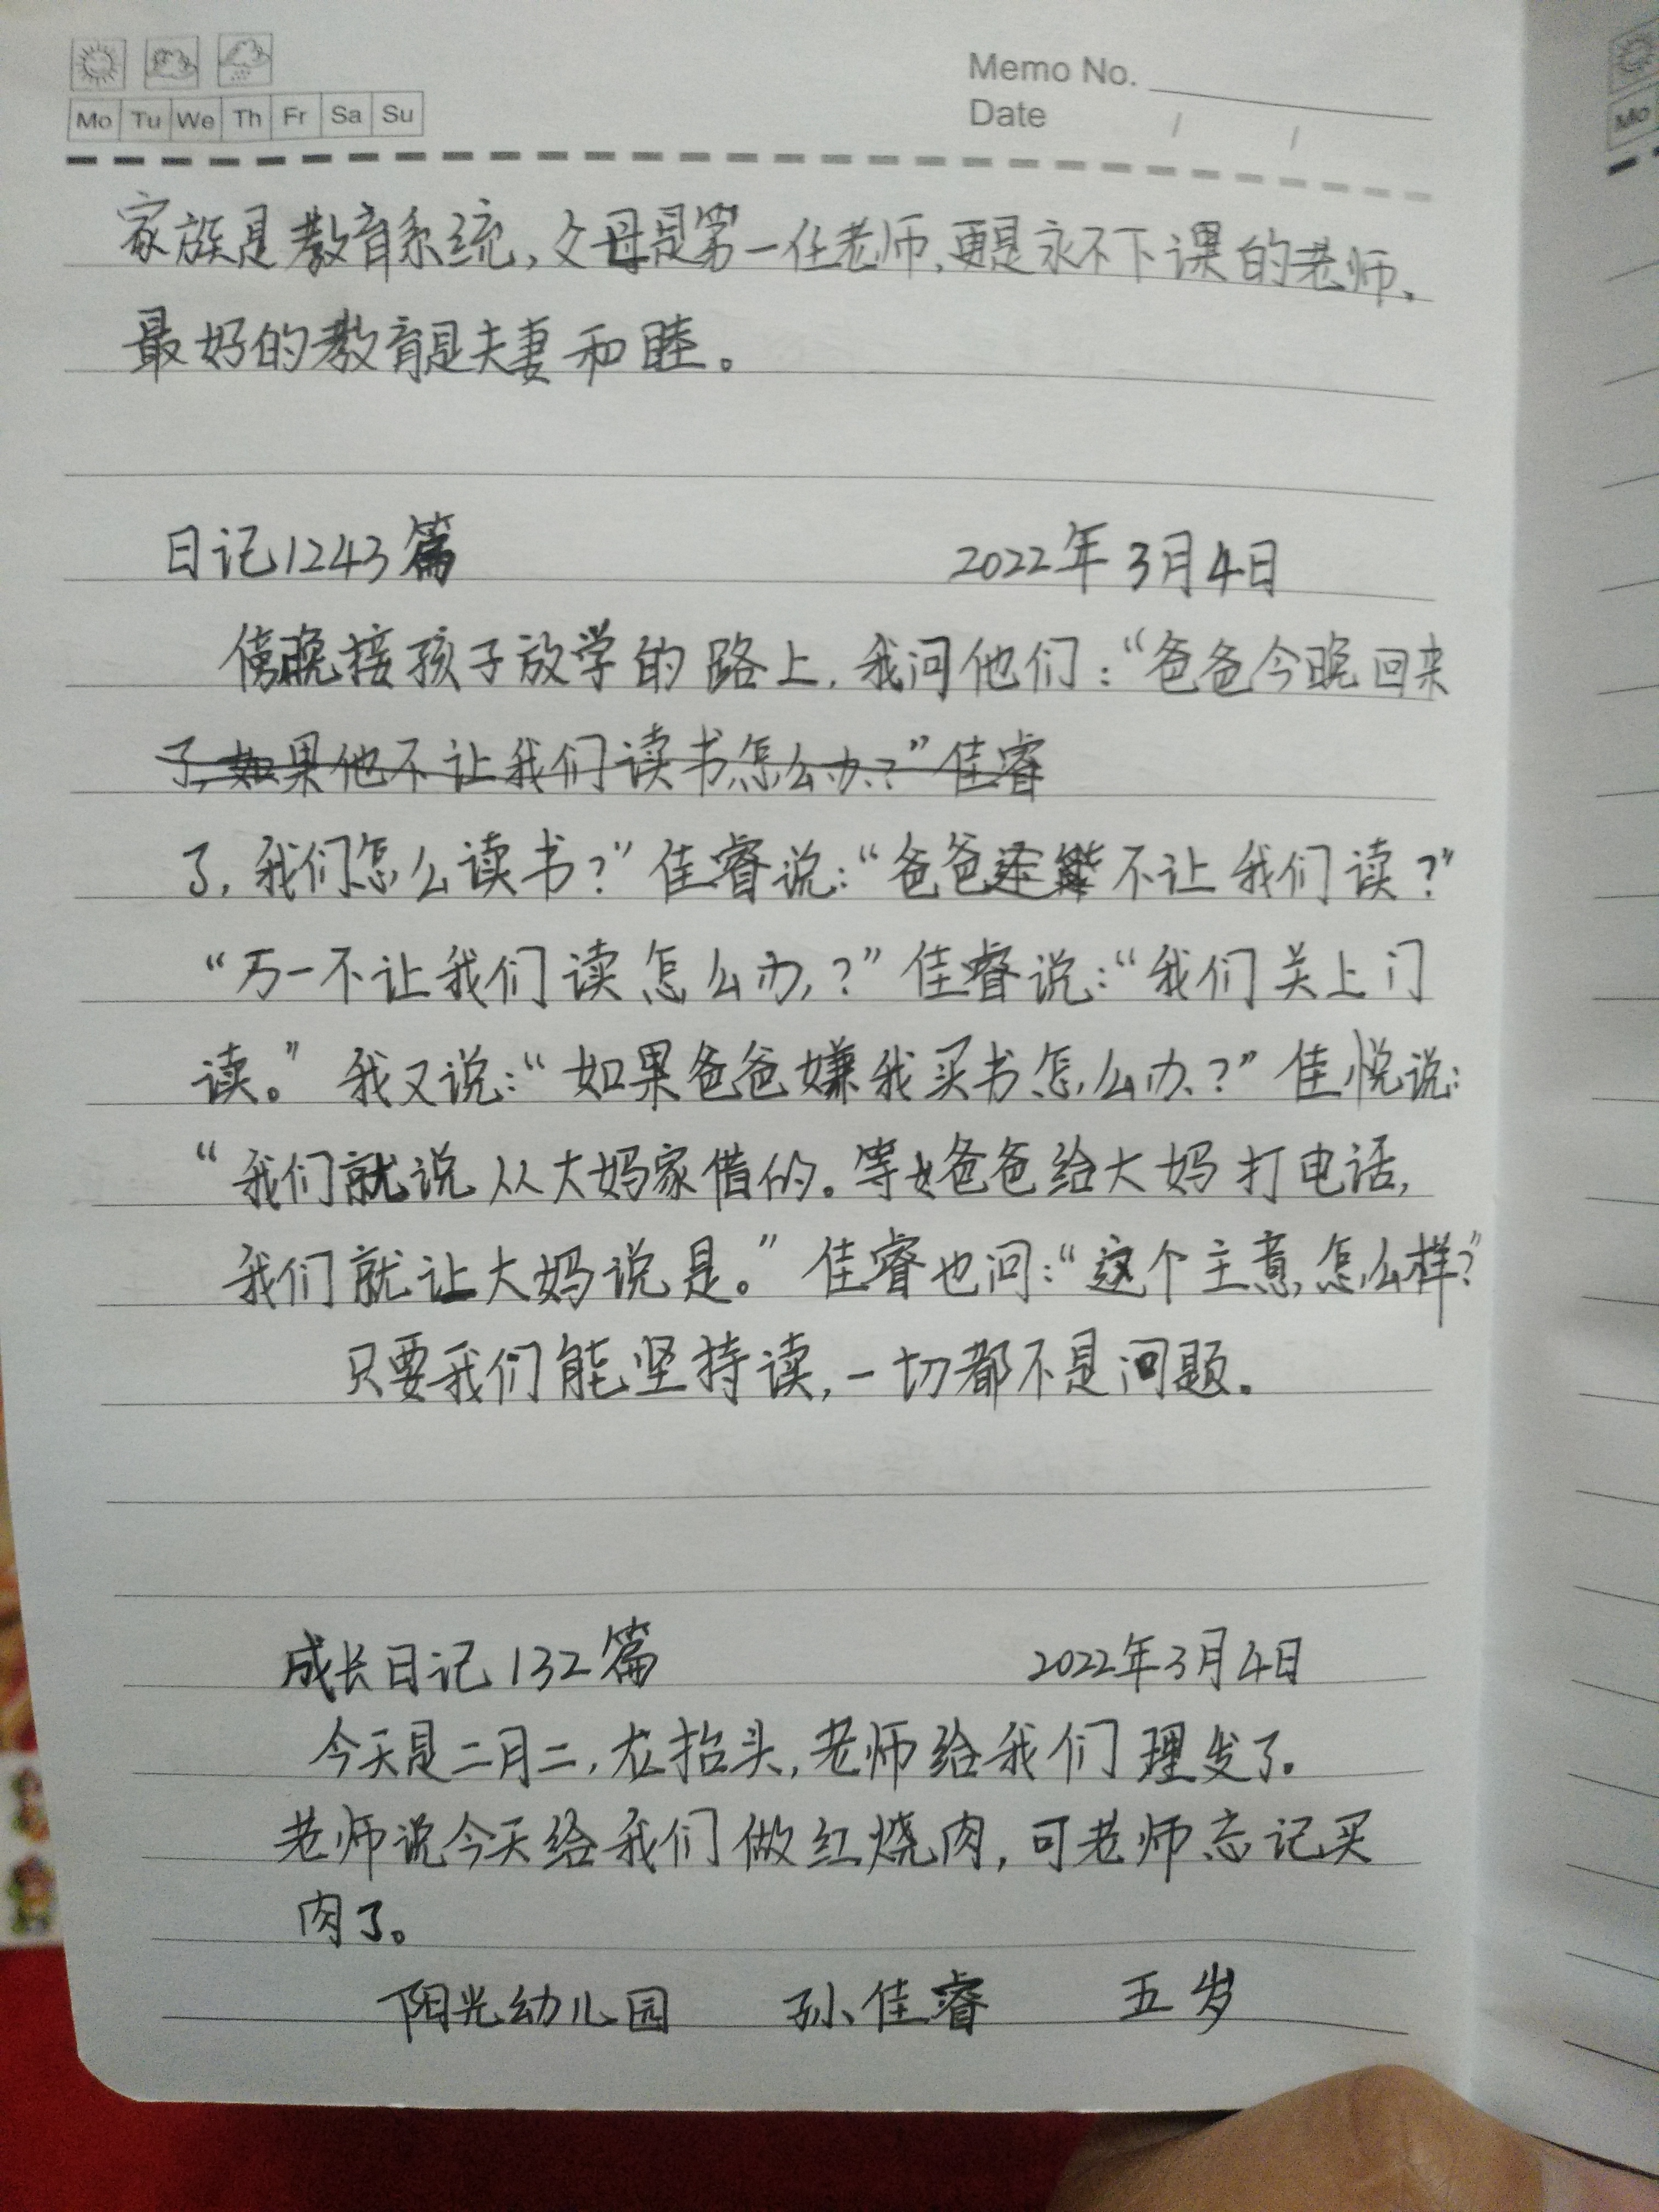 Memo No.
Mo Tu We Th Fr Sa Su
Date / /
家族是教育系统,父母是第一任老师,更是永不下课的老师。
最好的教育是夫妻和睦。
日记1243篇 2022年3月4日
傍晚接孩子放学的路上,我问他们:“爸爸今晚回来
了,如果他不让我们读书怎么办?”佳睿
了,我们怎么读书?”佳睿说:“爸爸还能不让我们读?”
“万一不让我们读怎么办?”佳睿说:“我们关上门
读。”我又说:“如果爸爸嫌我买书怎么办?”佳悦说:
“我们就说从大妈家借的。等爸爸给大妈打电话,
我们就让大妈说是。”佳睿也问:“这个主意,怎么样?”
只要我们能坚持读,一切都不是问题。
成长日记132篇 2022年3月4日
今天是二月二,龙抬头,老师给我们理发了.
老师说今天给我们做红烧肉,可老师忘记买
肉了。
阳光幼儿园 孙佳睿 五岁
Mo